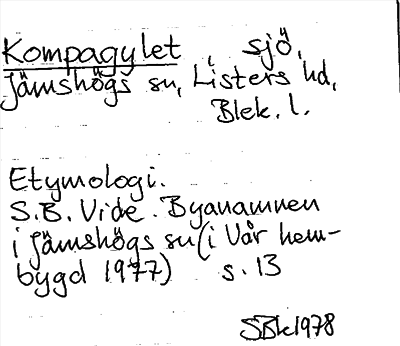 Kompagylet sjö,
Jämshögs sn, Listers hd,
Blek. l.
Etymologi.
S.B. Vide. Byanamnen
i Jämshögs sn (i Vår hem-
bygd 1977) s. 13
SBk 1978